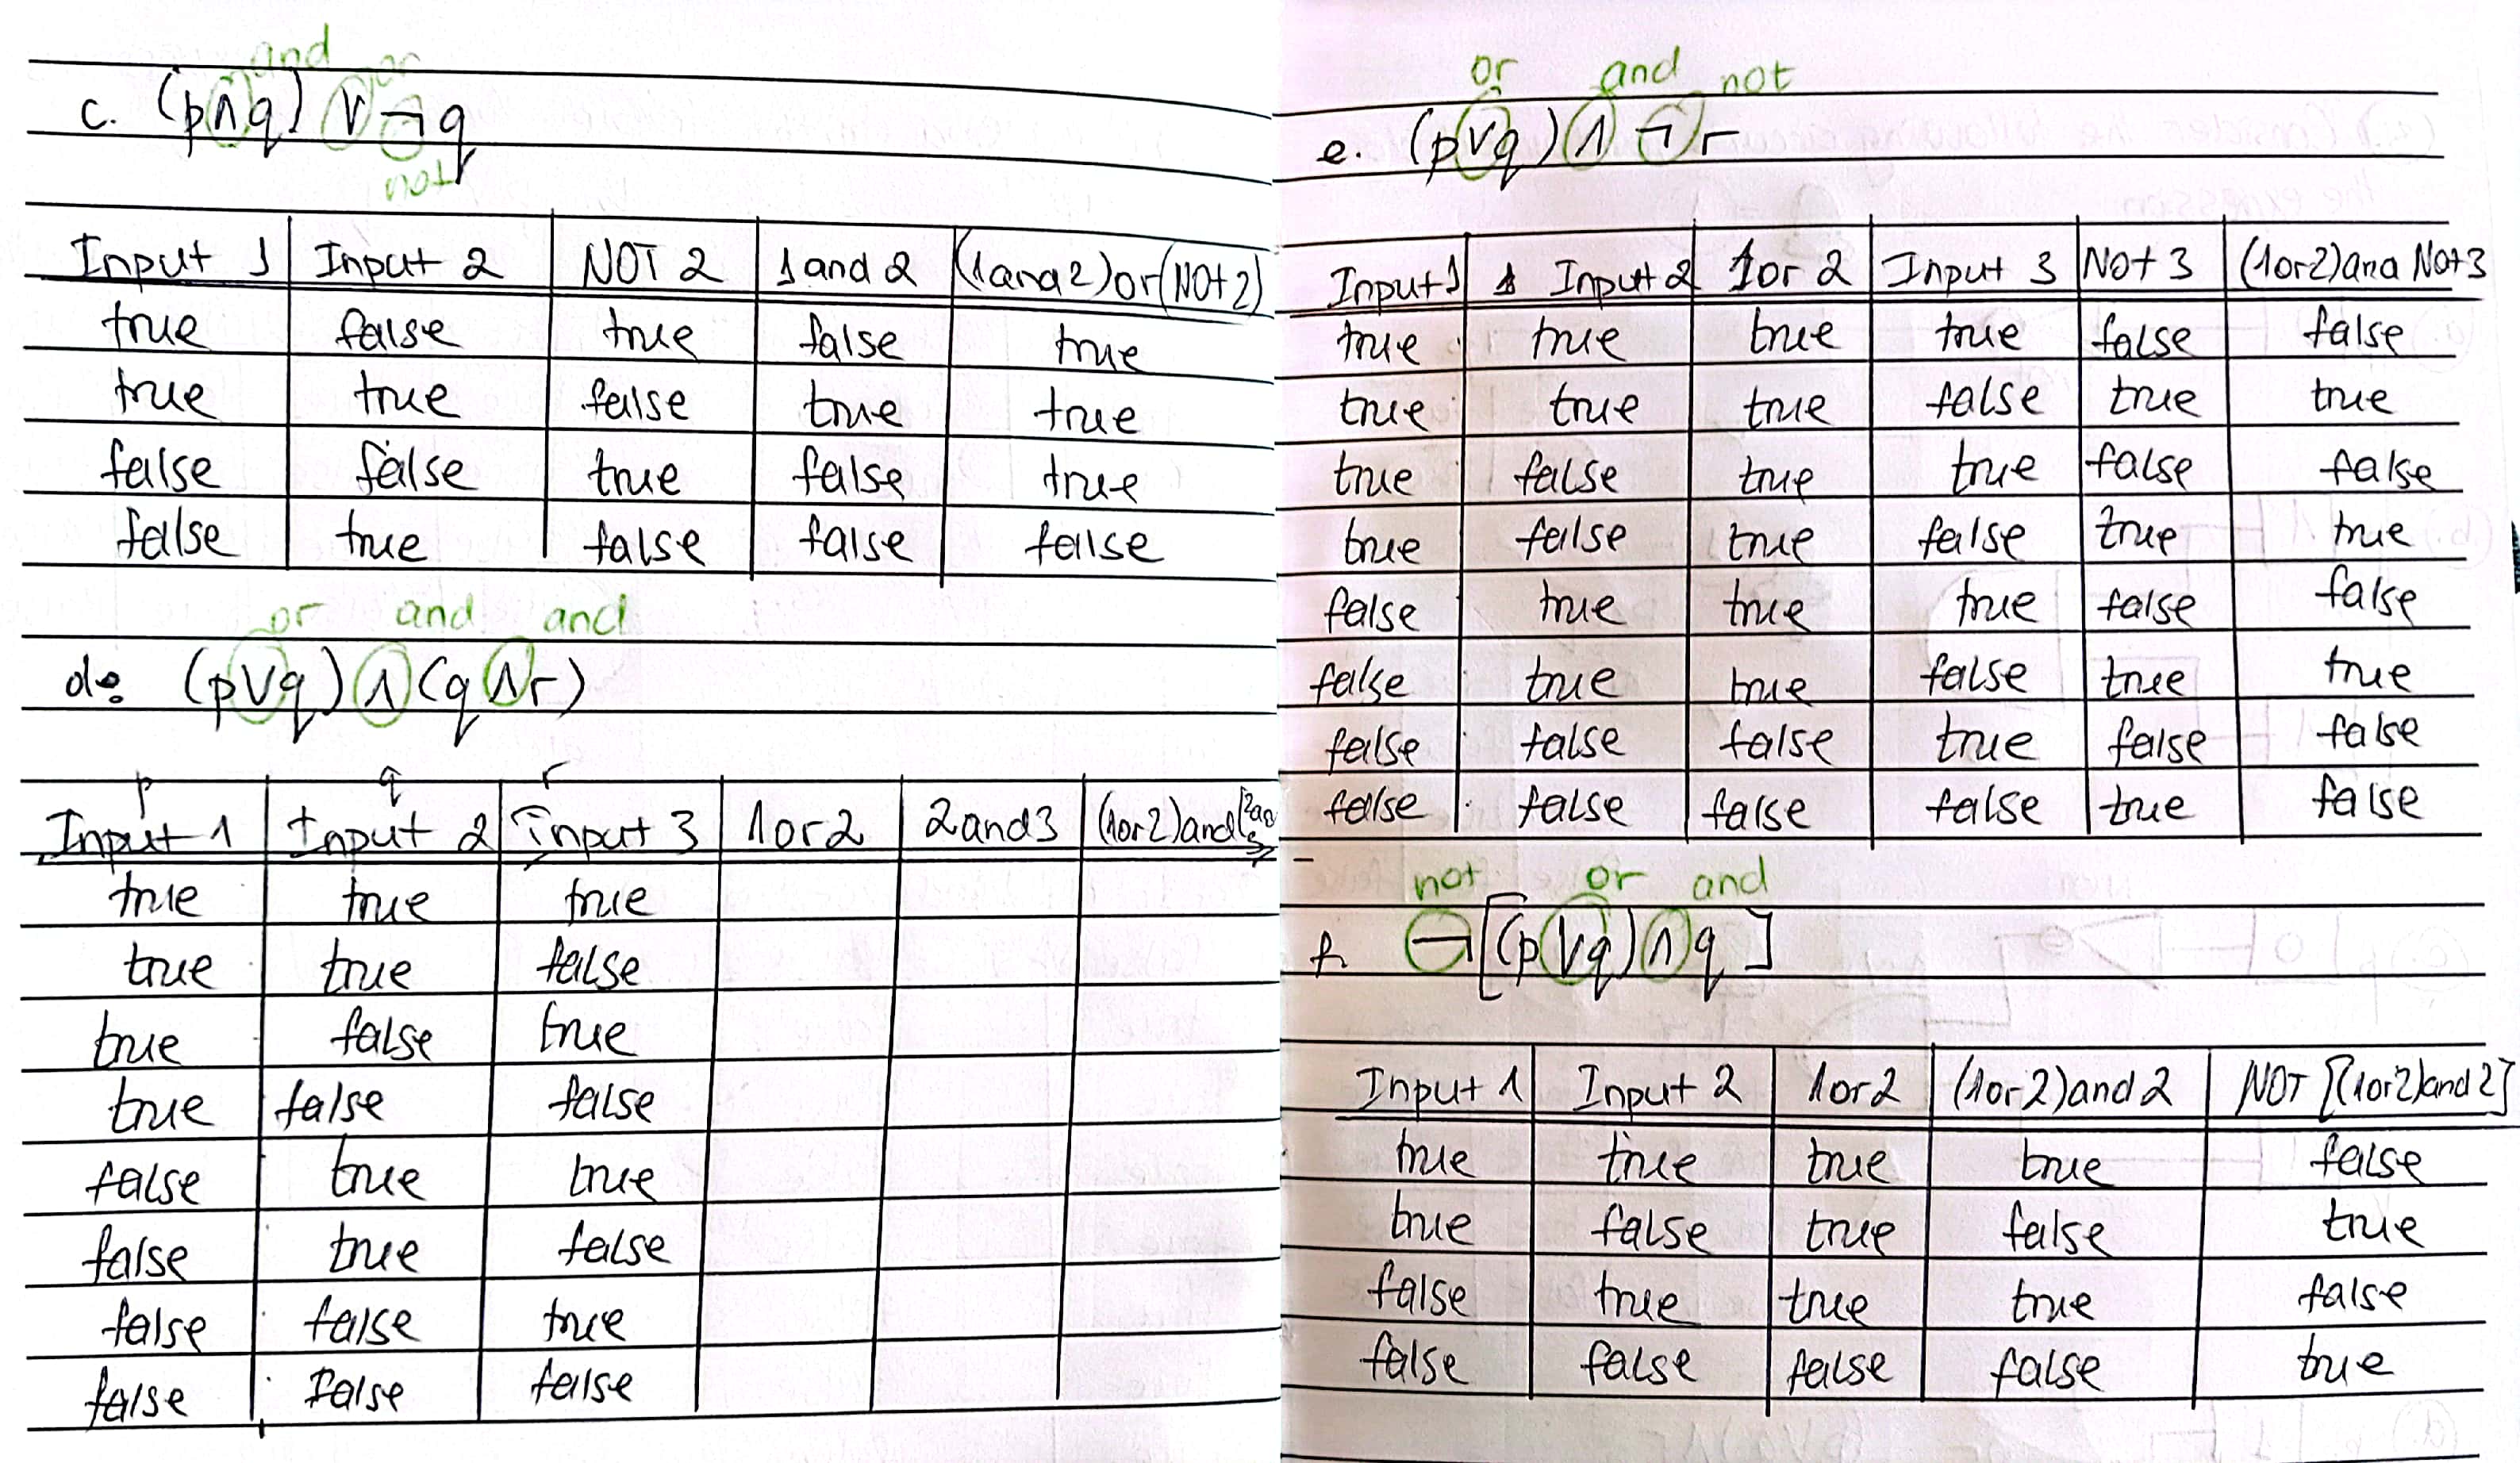 and or
c. (p∧q) ∨ ¬q
not
Input 1 Input 2 NOT 2 1 and 2 (1 and 2) or (NOt 2)
true false true false true
true true false true true
false false true false true
false true false false false
or and and
d. (p∨q) ∧ (q∧r)
p q r
Input 1 Input 2 Input 3 1 or 2 2 and 3 (1 or 2) and
true true true
true true false
true false true
true false false
false true true
false true false
false false true
false False false
or and not
e. (p∨q) ∧ ¬r
Input 1 Input 2 1 or 2 Input 3 Not 3 (1 or 2) and Not 3
true true true true false false
true true true false true true
true false true true false false
true false true false true true
false true true true false false
false true true false true true
false false false true false false
false false false false true false
not or and
f. ¬[(p∨q) ∧ q]
Input 1 Input 2 1 or 2 (1 or 2) and 2 NOT [(1 or 2) and 2]
true true true true false
true false true false true
false true true true false
false false false false true